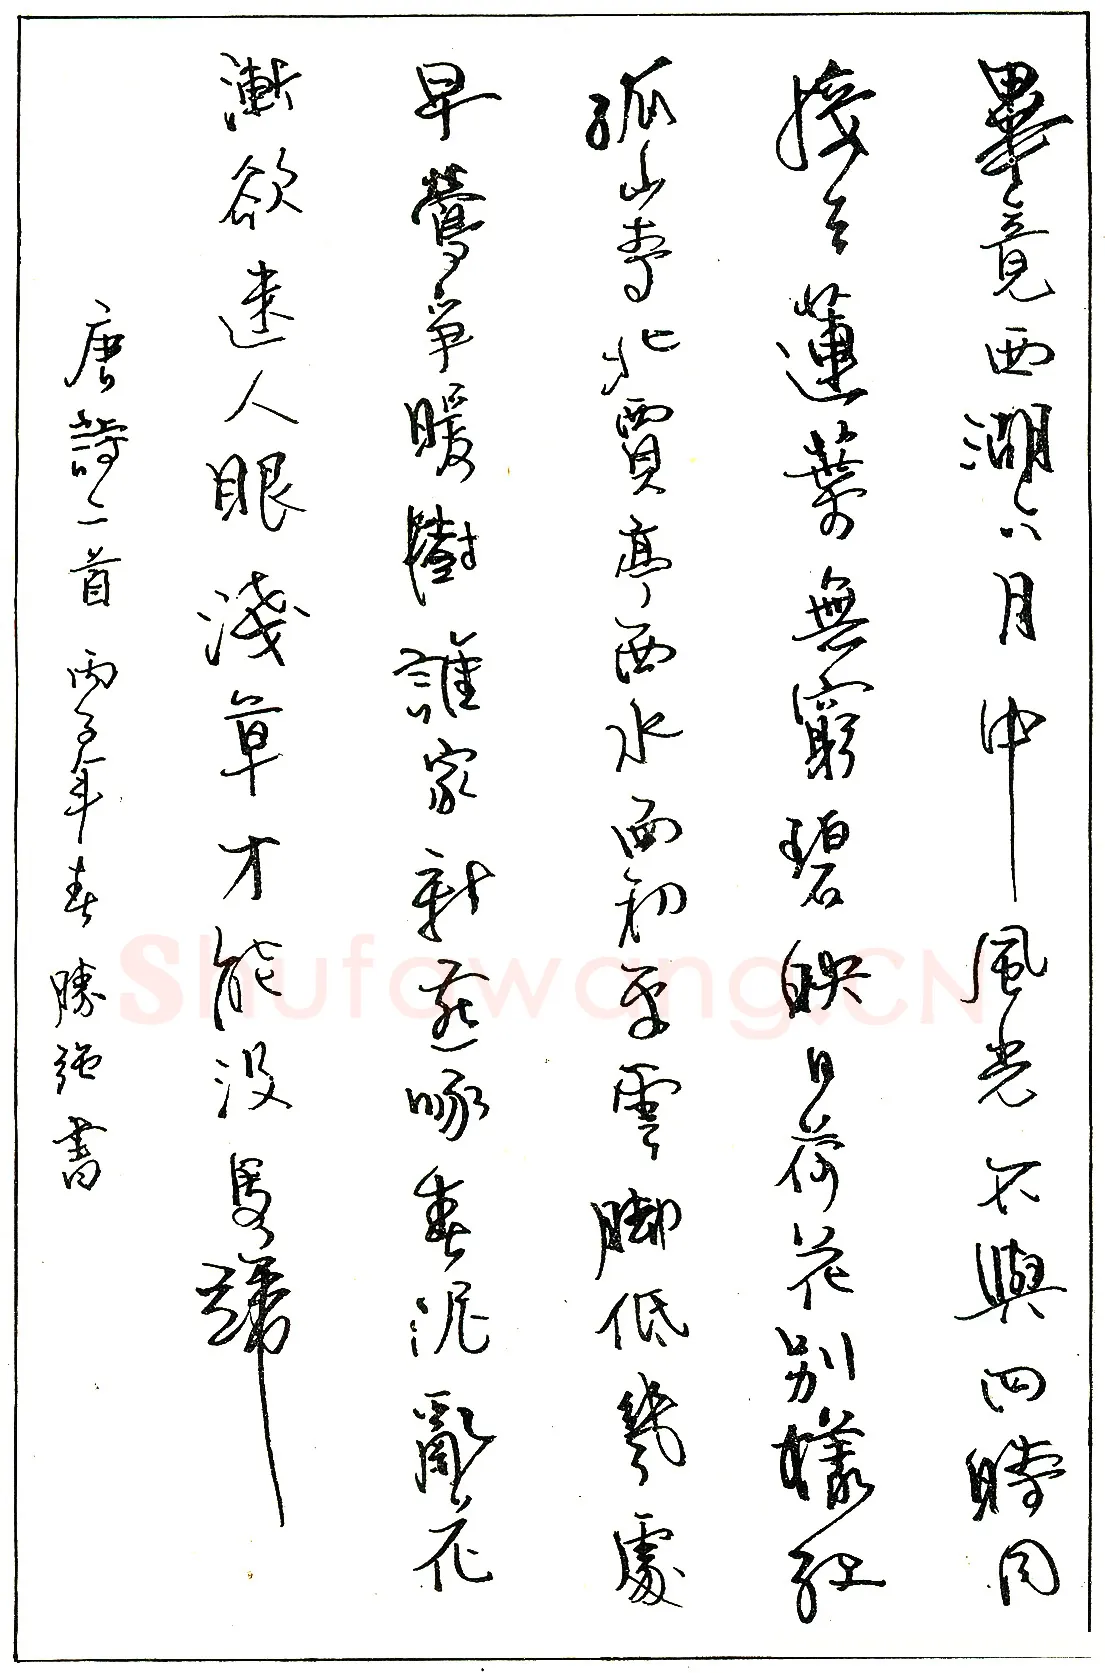 畢竟西湖六月中風光不與四時同
接天蓮葉無窮碧映日荷花別樣紅
孤山寺北賈亭西水面初平雲脚低幾處
早鶯爭暖樹誰家新燕啄春泥亂花
漸欲迷人眼淺草才能没馬蹄
唐詩二首 丙子年春 勝 書
Shufawang.CN